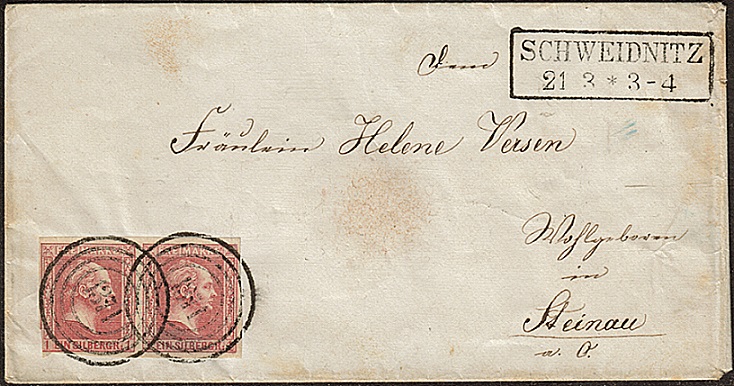 SCHWEIDNITZ
21 3 * 3-4
Dem
Fräulein Helene Versen
Wohlgeboren
in
Steinau
a. O.
1 EIN SILBERGR. 1
EIN SILBERGR.